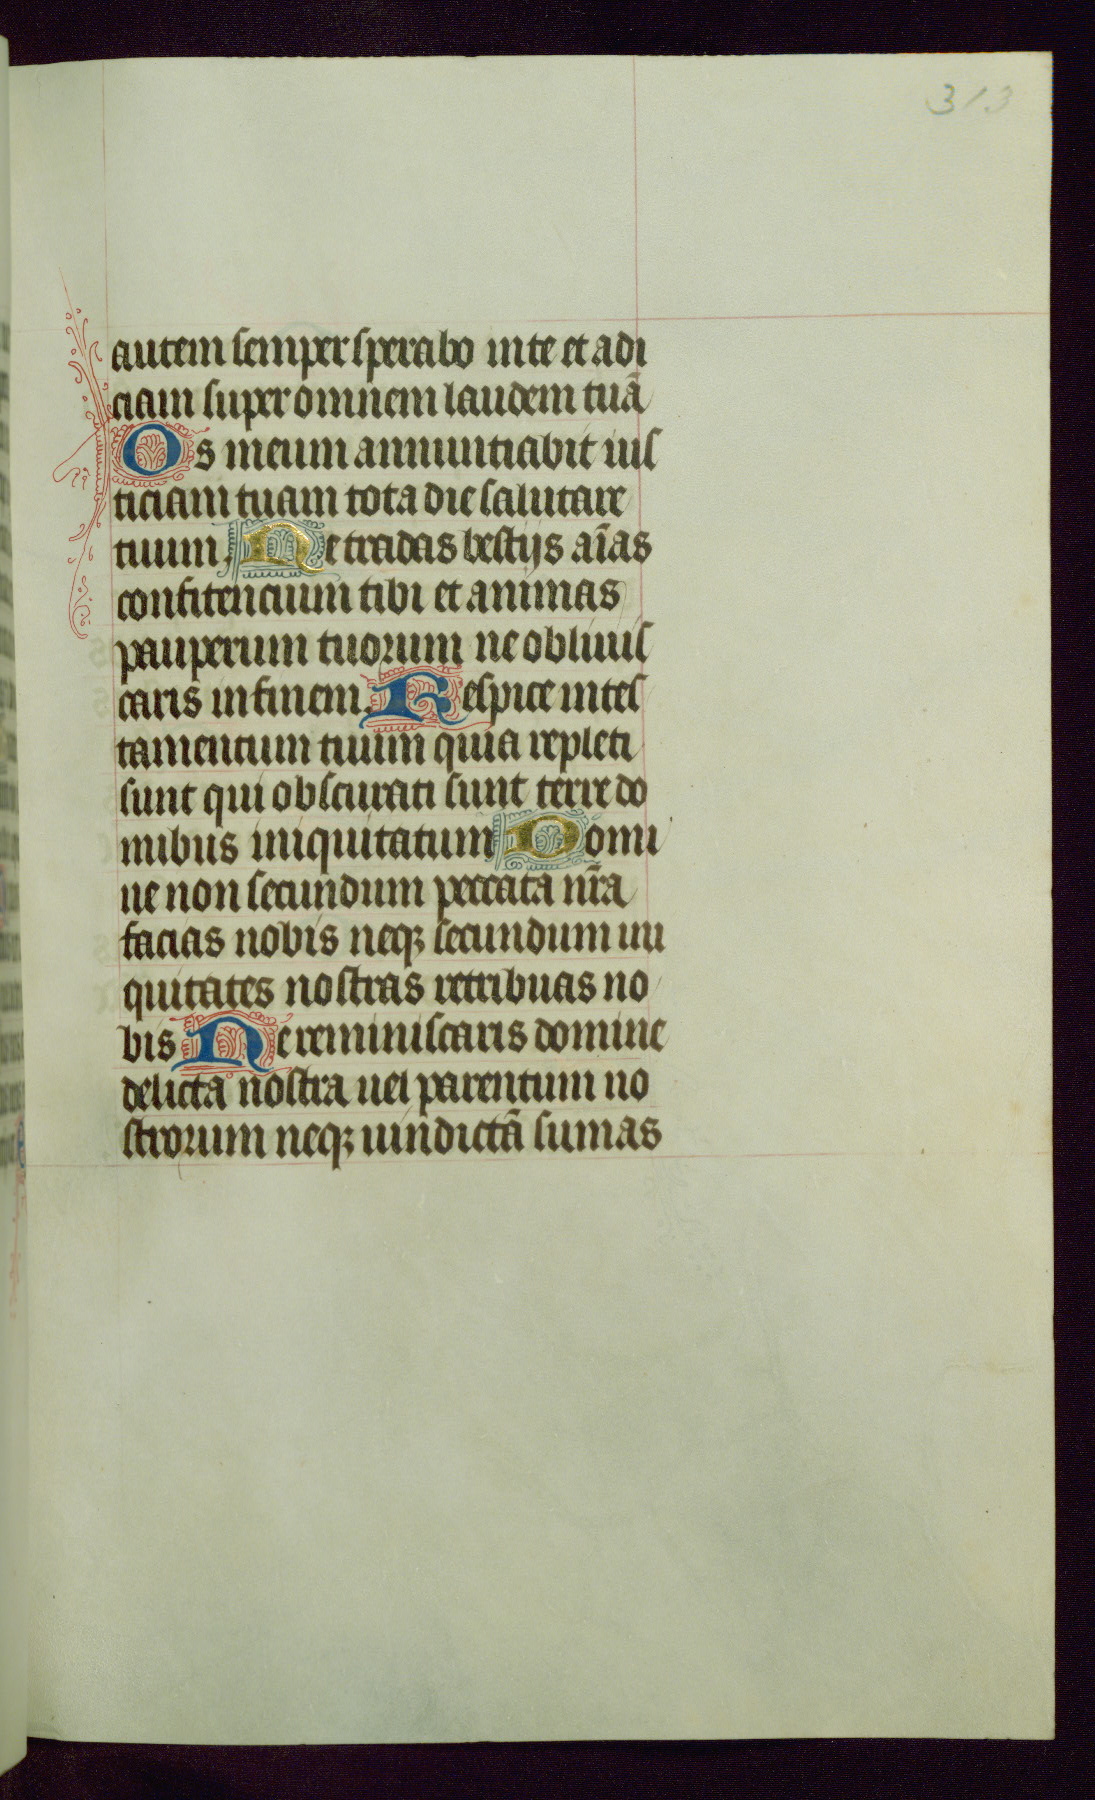 313
autem semper sperabo in te et adi
ciam super omnem laudem tuã
Os meum annunciabit ius
ticiam tuam tota die salutare
tuum, Ne tradas bestijs aĩas
confitencium tibi et animas
pauperum tuorum ne obliuis
caris in finem. Respice in tes
tamentum tuum quia repleti
sunt qui obscurati sunt terre do
mibus iniquitatum Domi
ne non secundum peccata nr̃a
facias nobis neqꝫ secundum ini
quitates nostras retribuas no
bis Ne reminiscaris domine
delicta nostra uel parentum no
strorum neqꝫ uindictã sumas